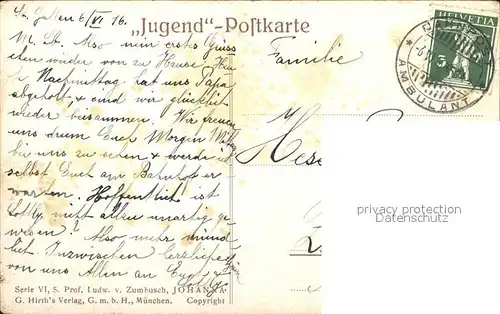 St. Gallen 6/VI 16.
„Jugend"-Postkarte
HELVETIA
5
AMBULANT
M. Lb. Also nein erstes Grüss
chen wieder von zu Hause. Heu
te Nachmittag hat uns Papa
abgeholt & sind wir glücklich
wieder beisammen. Wir freuen
uns drum Euch Morgen
bei uns zu sehen & werde ich
selbst Euch am Bahnhof er
warten. Hoffentlich ist
Lotly nicht allen unartig ge
wesen! Also mehr münd
lich. Inzwischen herzliche
von uns Allen an Euch
Familie
Hese
privacy protection
(Datenschutz)
Serie VI, 5. Prof. Ludw. v. Zumbusch, JOHANNA
G. Hirth's Verlag, G. m. b. H., München. Copyright